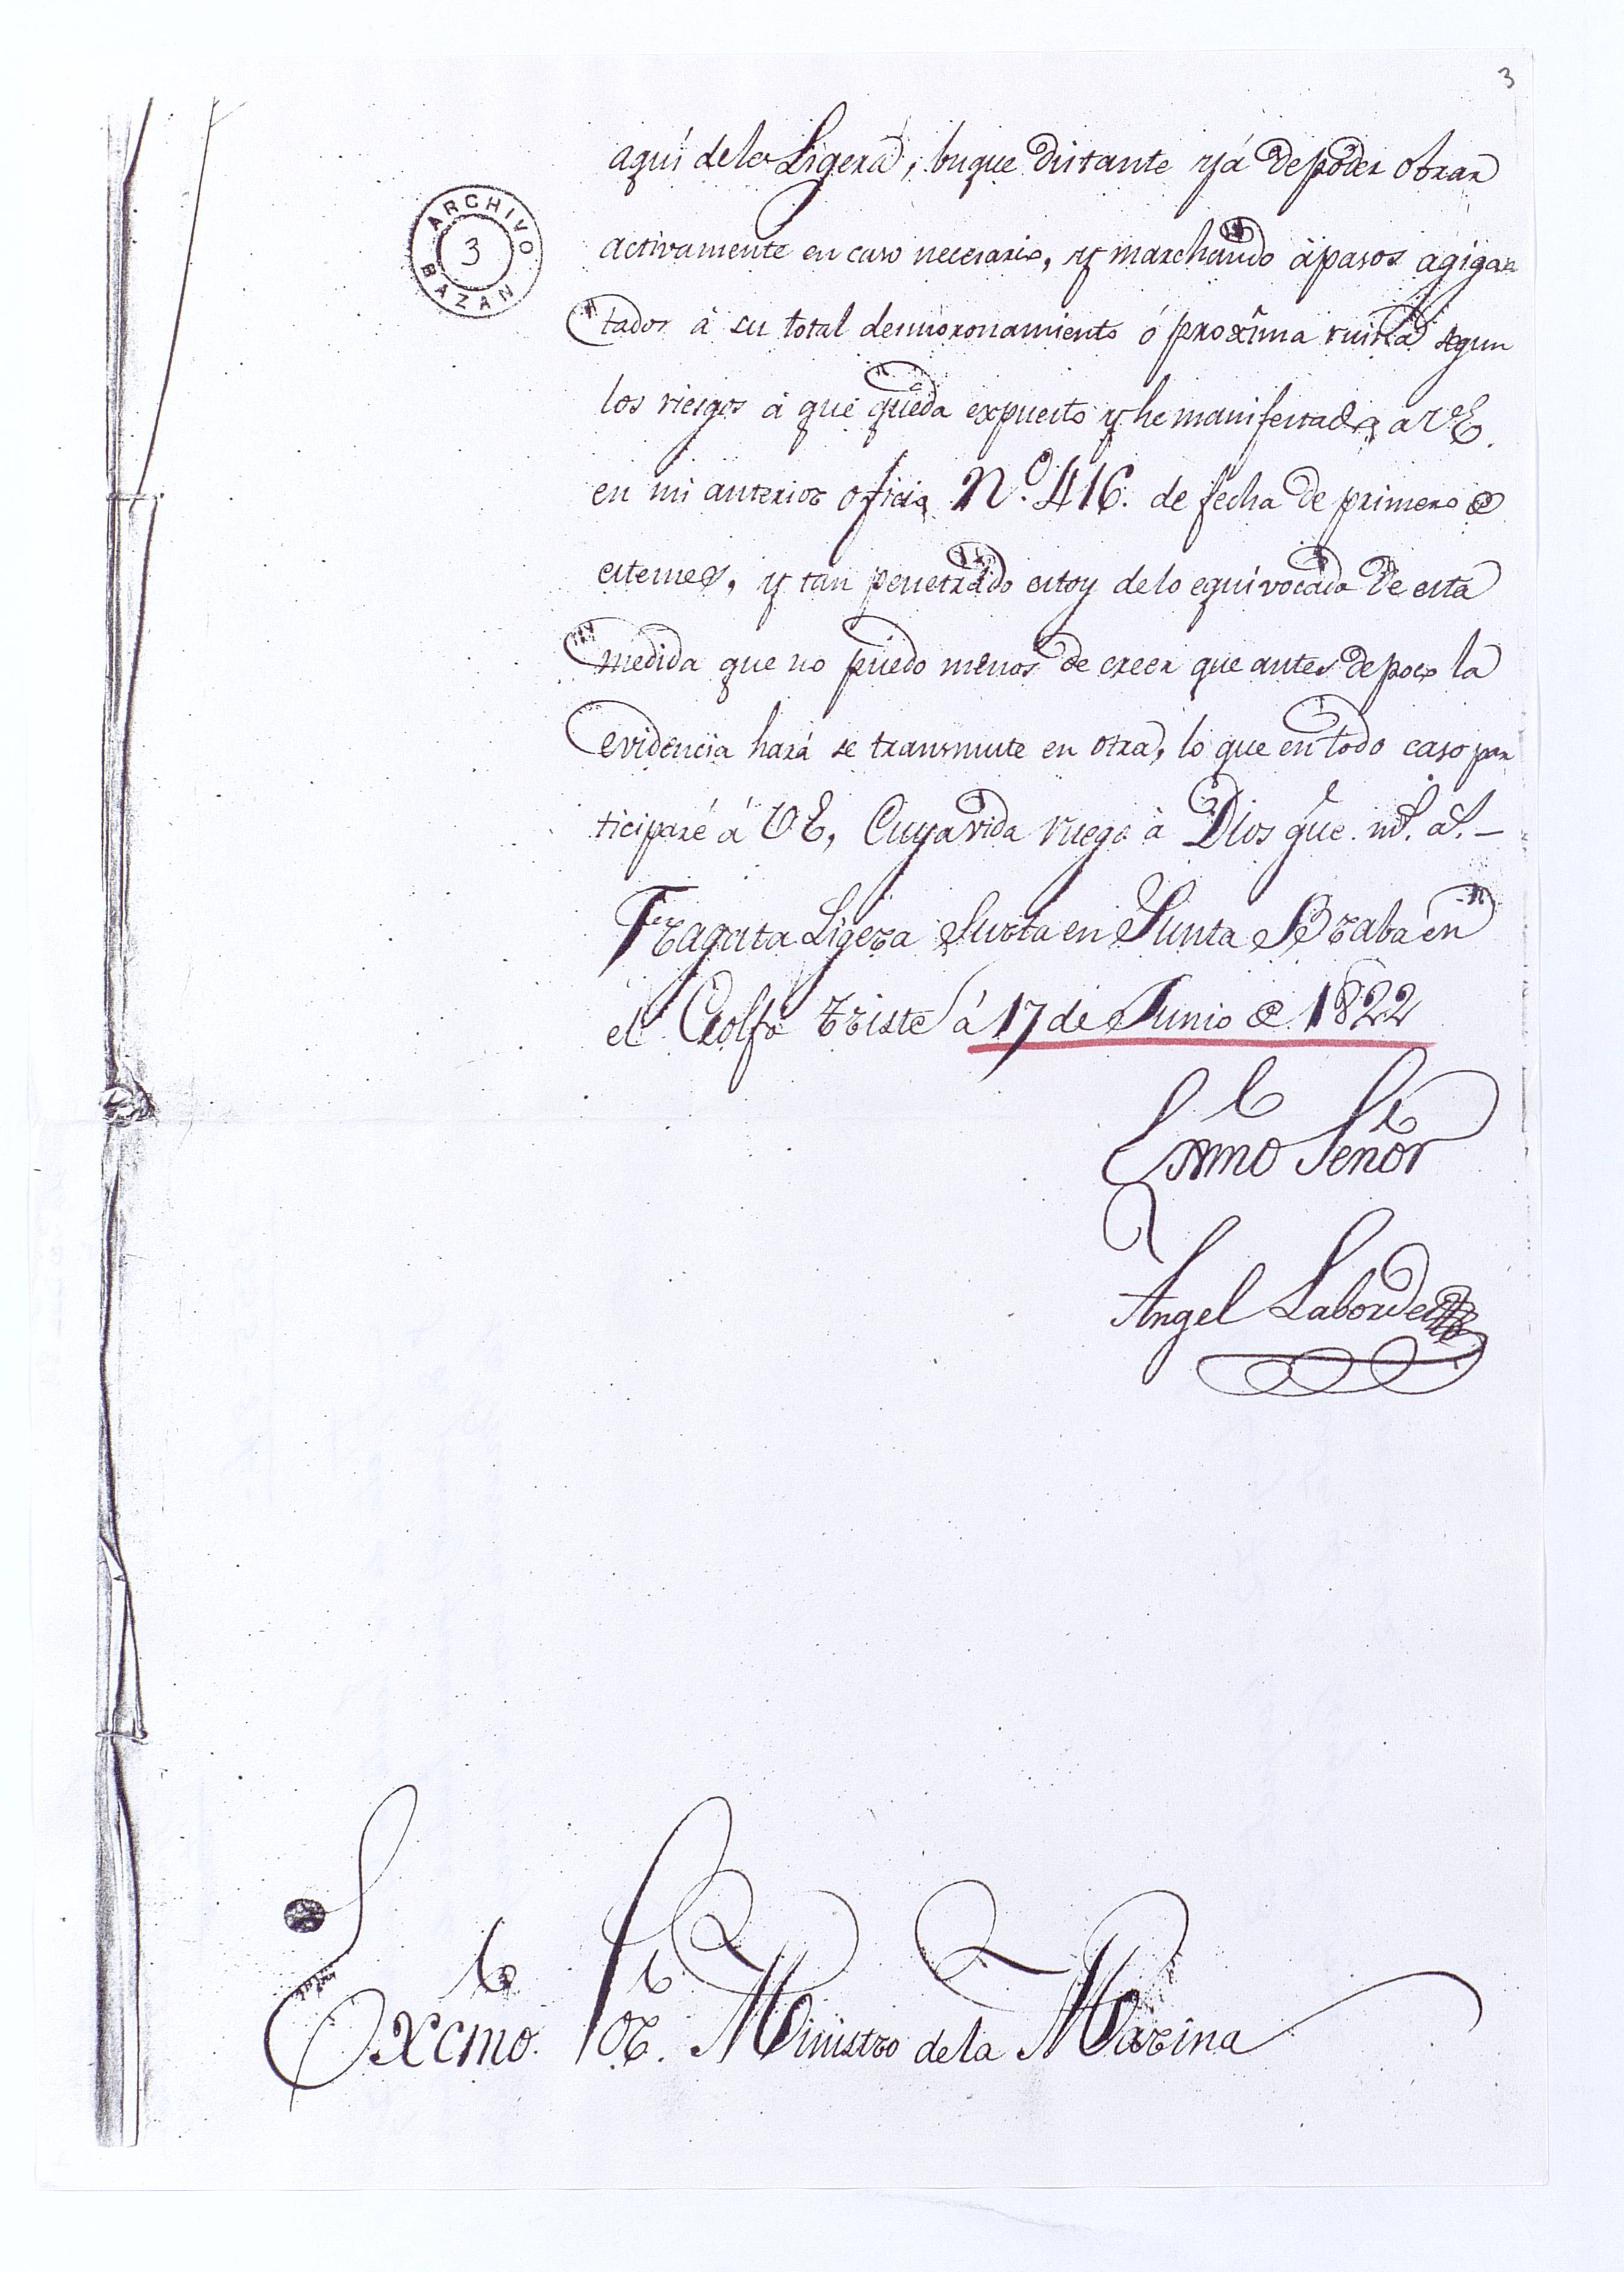 3
ARCHIVO
3
BAZAN
aquí dela Ligera, buque distante yá de poder obrar
activamente en caso necesario, y marchando á pasos agigan
tados á su total desmoronamiento ó proxîma ruina segun
los riesgos á que queda expuesto y he manifestado a V.E.
en mi anterior oficio N.º 416. de fecha de primero de
estemes, y tan penetrado estoy delo equivocada de esta
medida que no puedo menos de creer que antes de poco la
evidencia hará se transmute en otra, lo que en todo caso par
ticiparé á V.E, Cuya vida ruego á Dios gûe. ms. as. —
Fragata Ligera Surta en Punta Braba en
el Golfo triste á 17 de Junio de 1822
Exmo Señor
Angel Laborde
Excmo. Sor. Ministro dela Marina